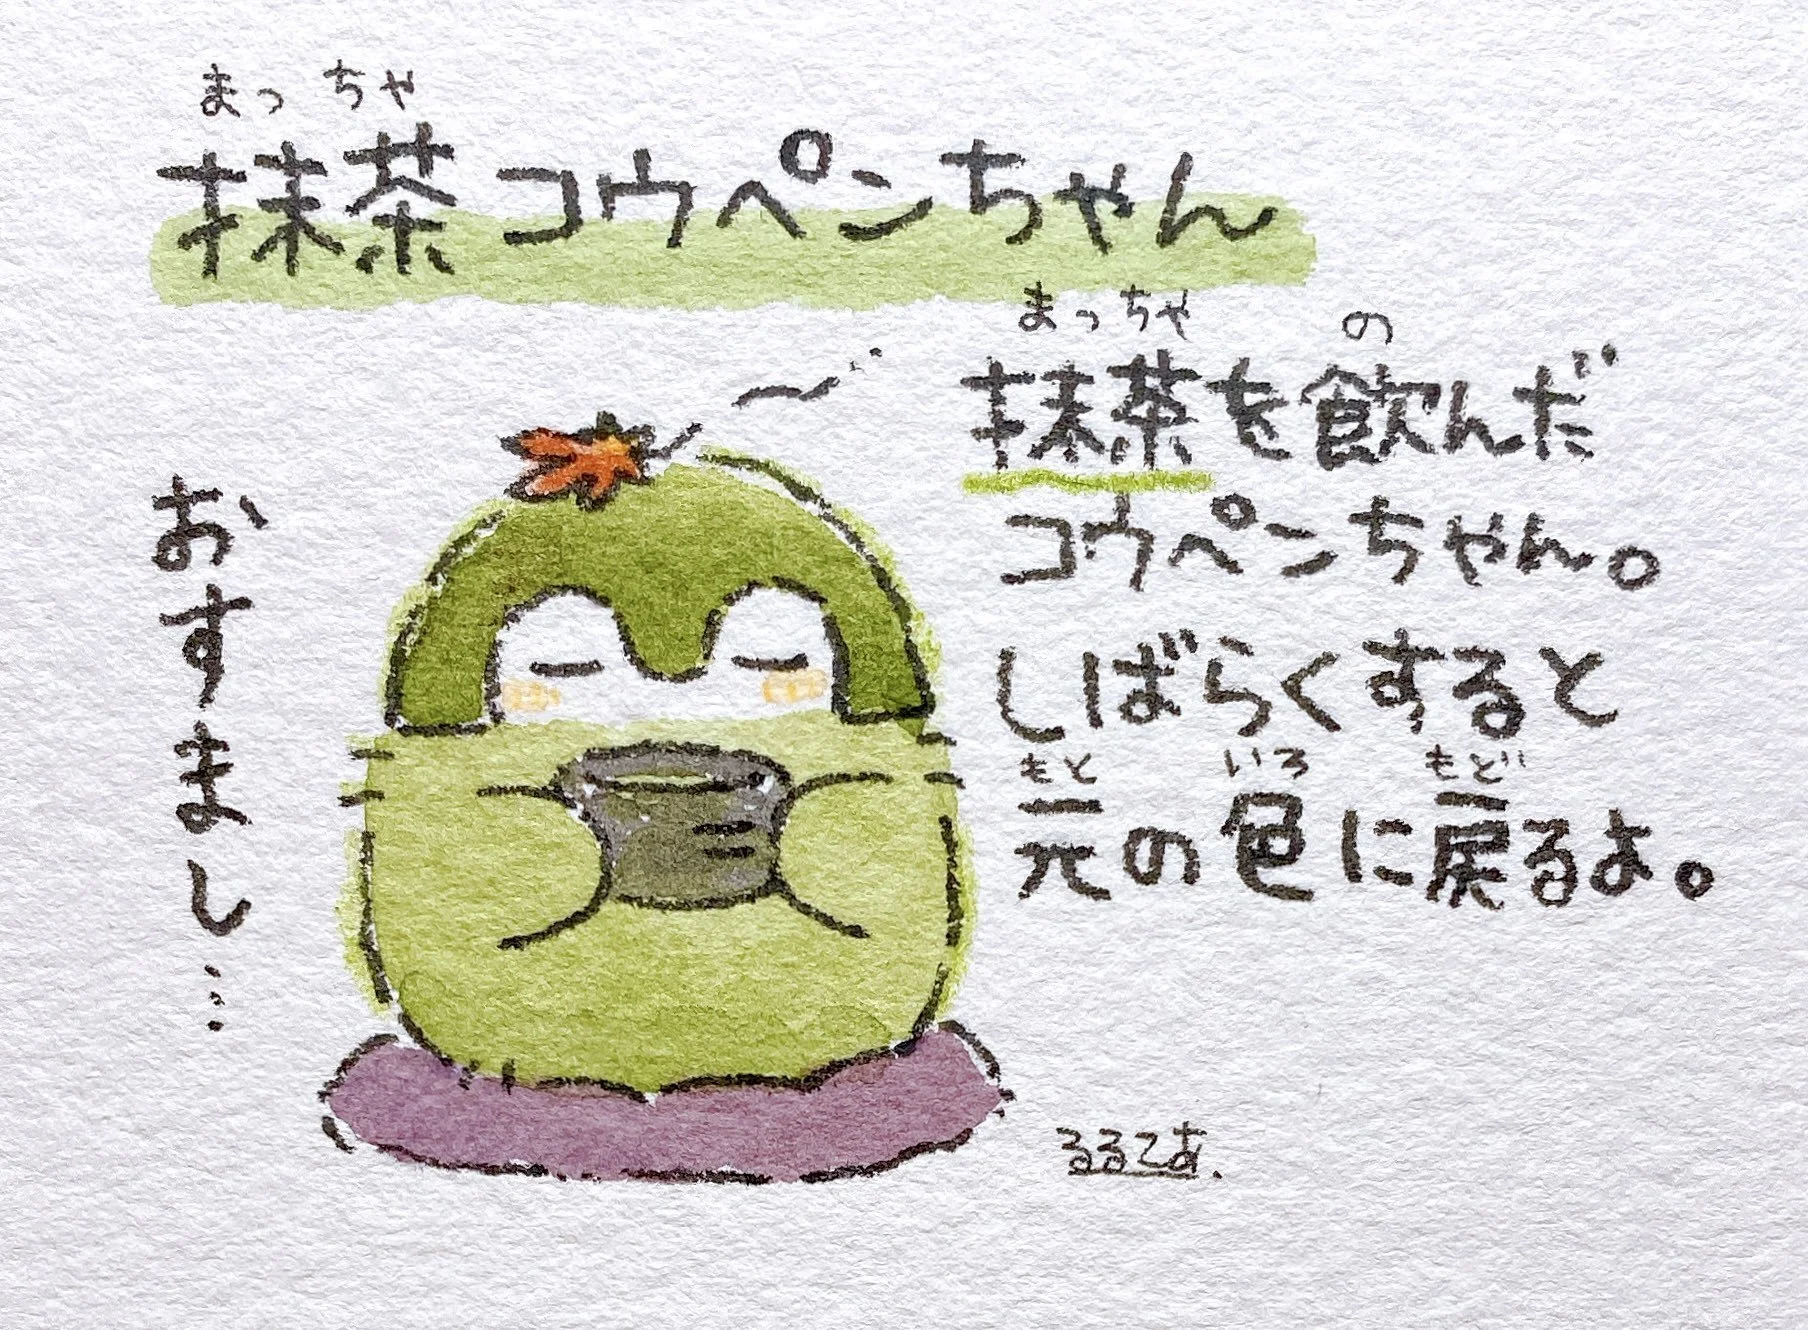 まっちゃ
抹茶コウペンちゃん
まっちゃ の
抹茶を飲んだ
コウペンちゃん。
しばらくすると
もと いろ もど
元の色に戻るよ。
おすまし…
るるてあ.